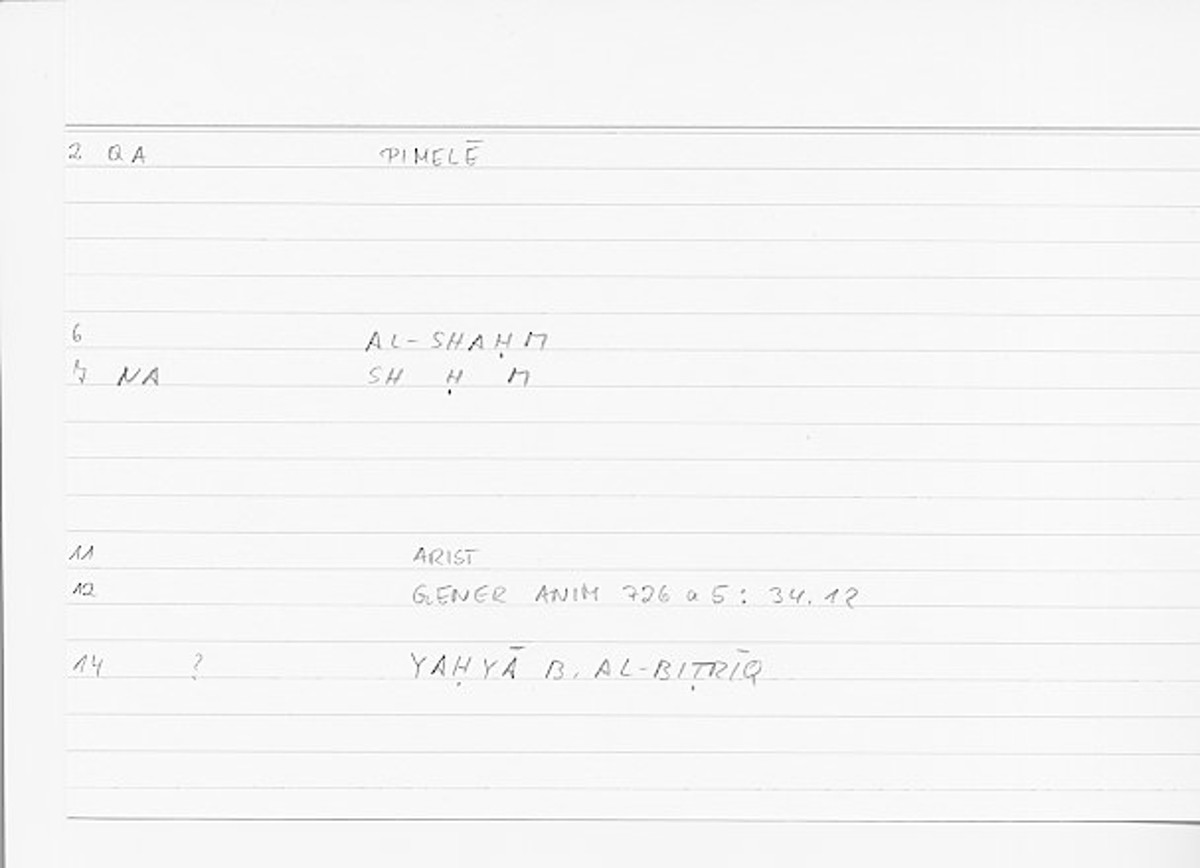 2 QA PIMELĒ
6 AL-SHAḤM
7 NA SH Ḥ M
11 ARIST
12 GENER ANIM 726 a 5: 34.12
14 ? YAḤYĀ B. AL-BIṬRĪQ